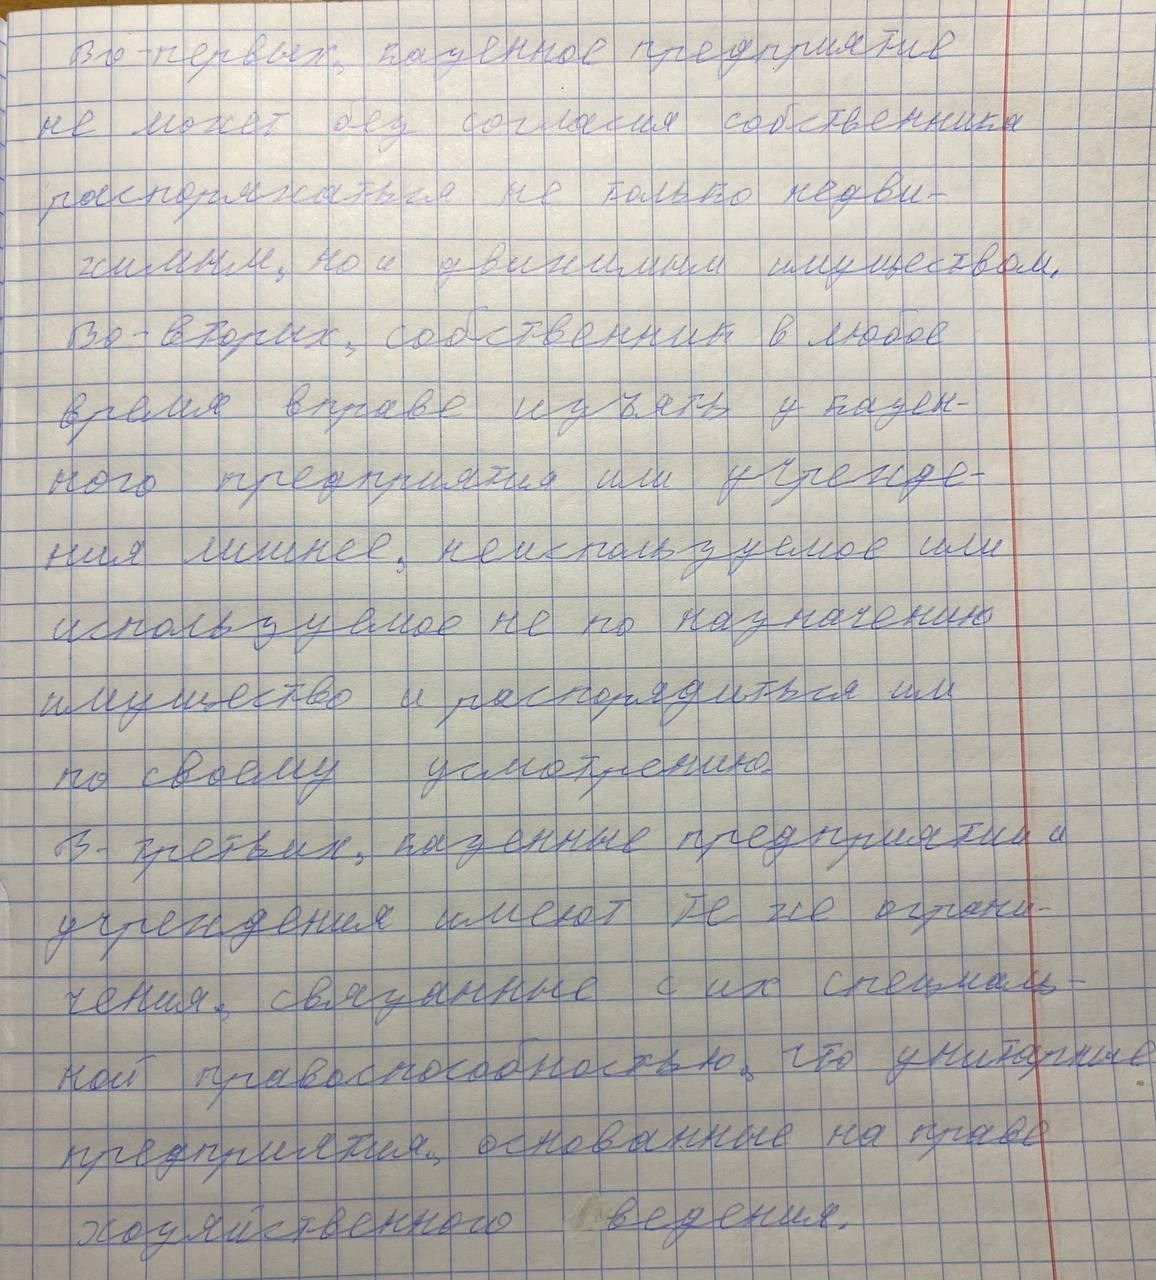 Во-первых, казенное предприятие
не может без согласия собственника
распоряжаться не только недви-
жимым, но и движимым имуществом.
Во-вторых, собственник в любое
время вправе изъять у казен-
ного предприятия или учрежде-
ния лишнее, неиспользуемое или
используемое не по назначению
имущество и распорядиться им
по своему усмотрению.
В-третьих, казенные предприятия и
учреждения имеют те же ограни-
чения, связанные с их специаль-
ной правоспособностью, что унитарные
предприятия, основанные на праве
хозяйственного ведения.